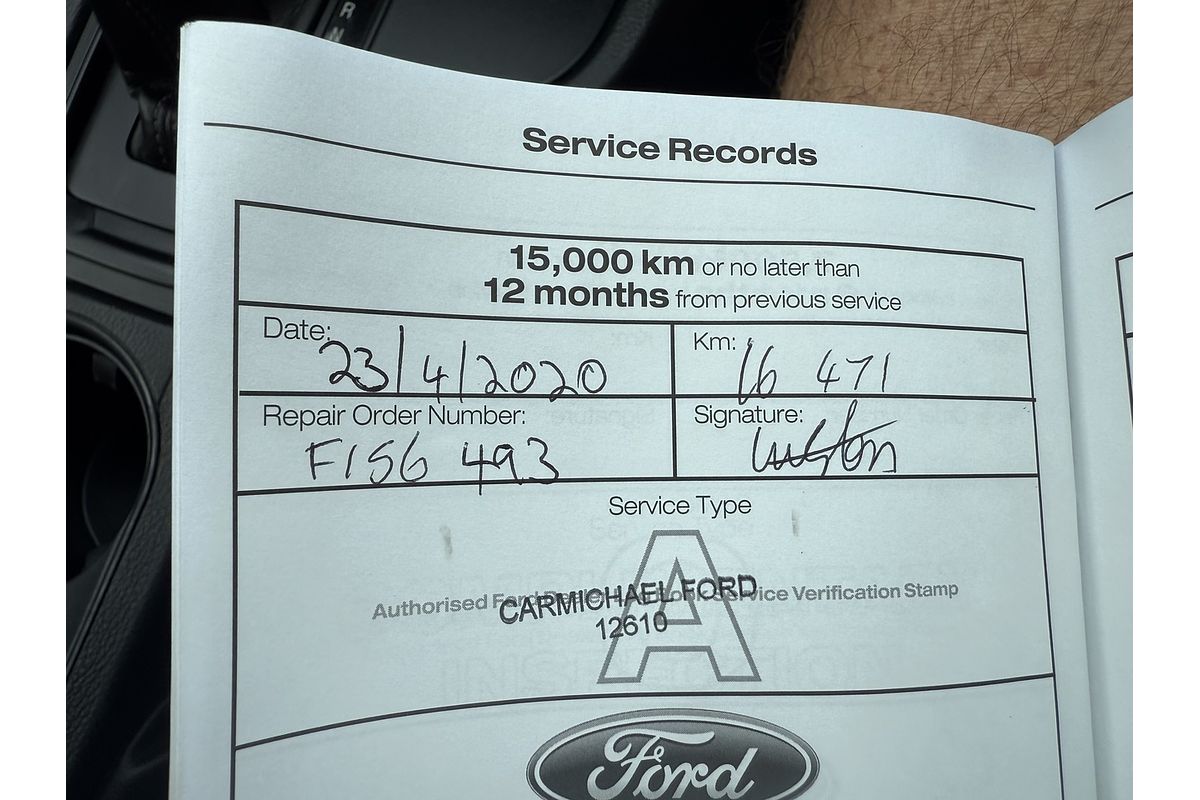 R
Service Records
15,000 km or no later than
12 months from previous service
Date: 23/4/2020
Km: 16 471
Repair Order Number: F156 493
Signature:
Service Type
A
Authorised Ford Dealer Service Verification Stamp
CARMICHAEL FORD
12610
Ford